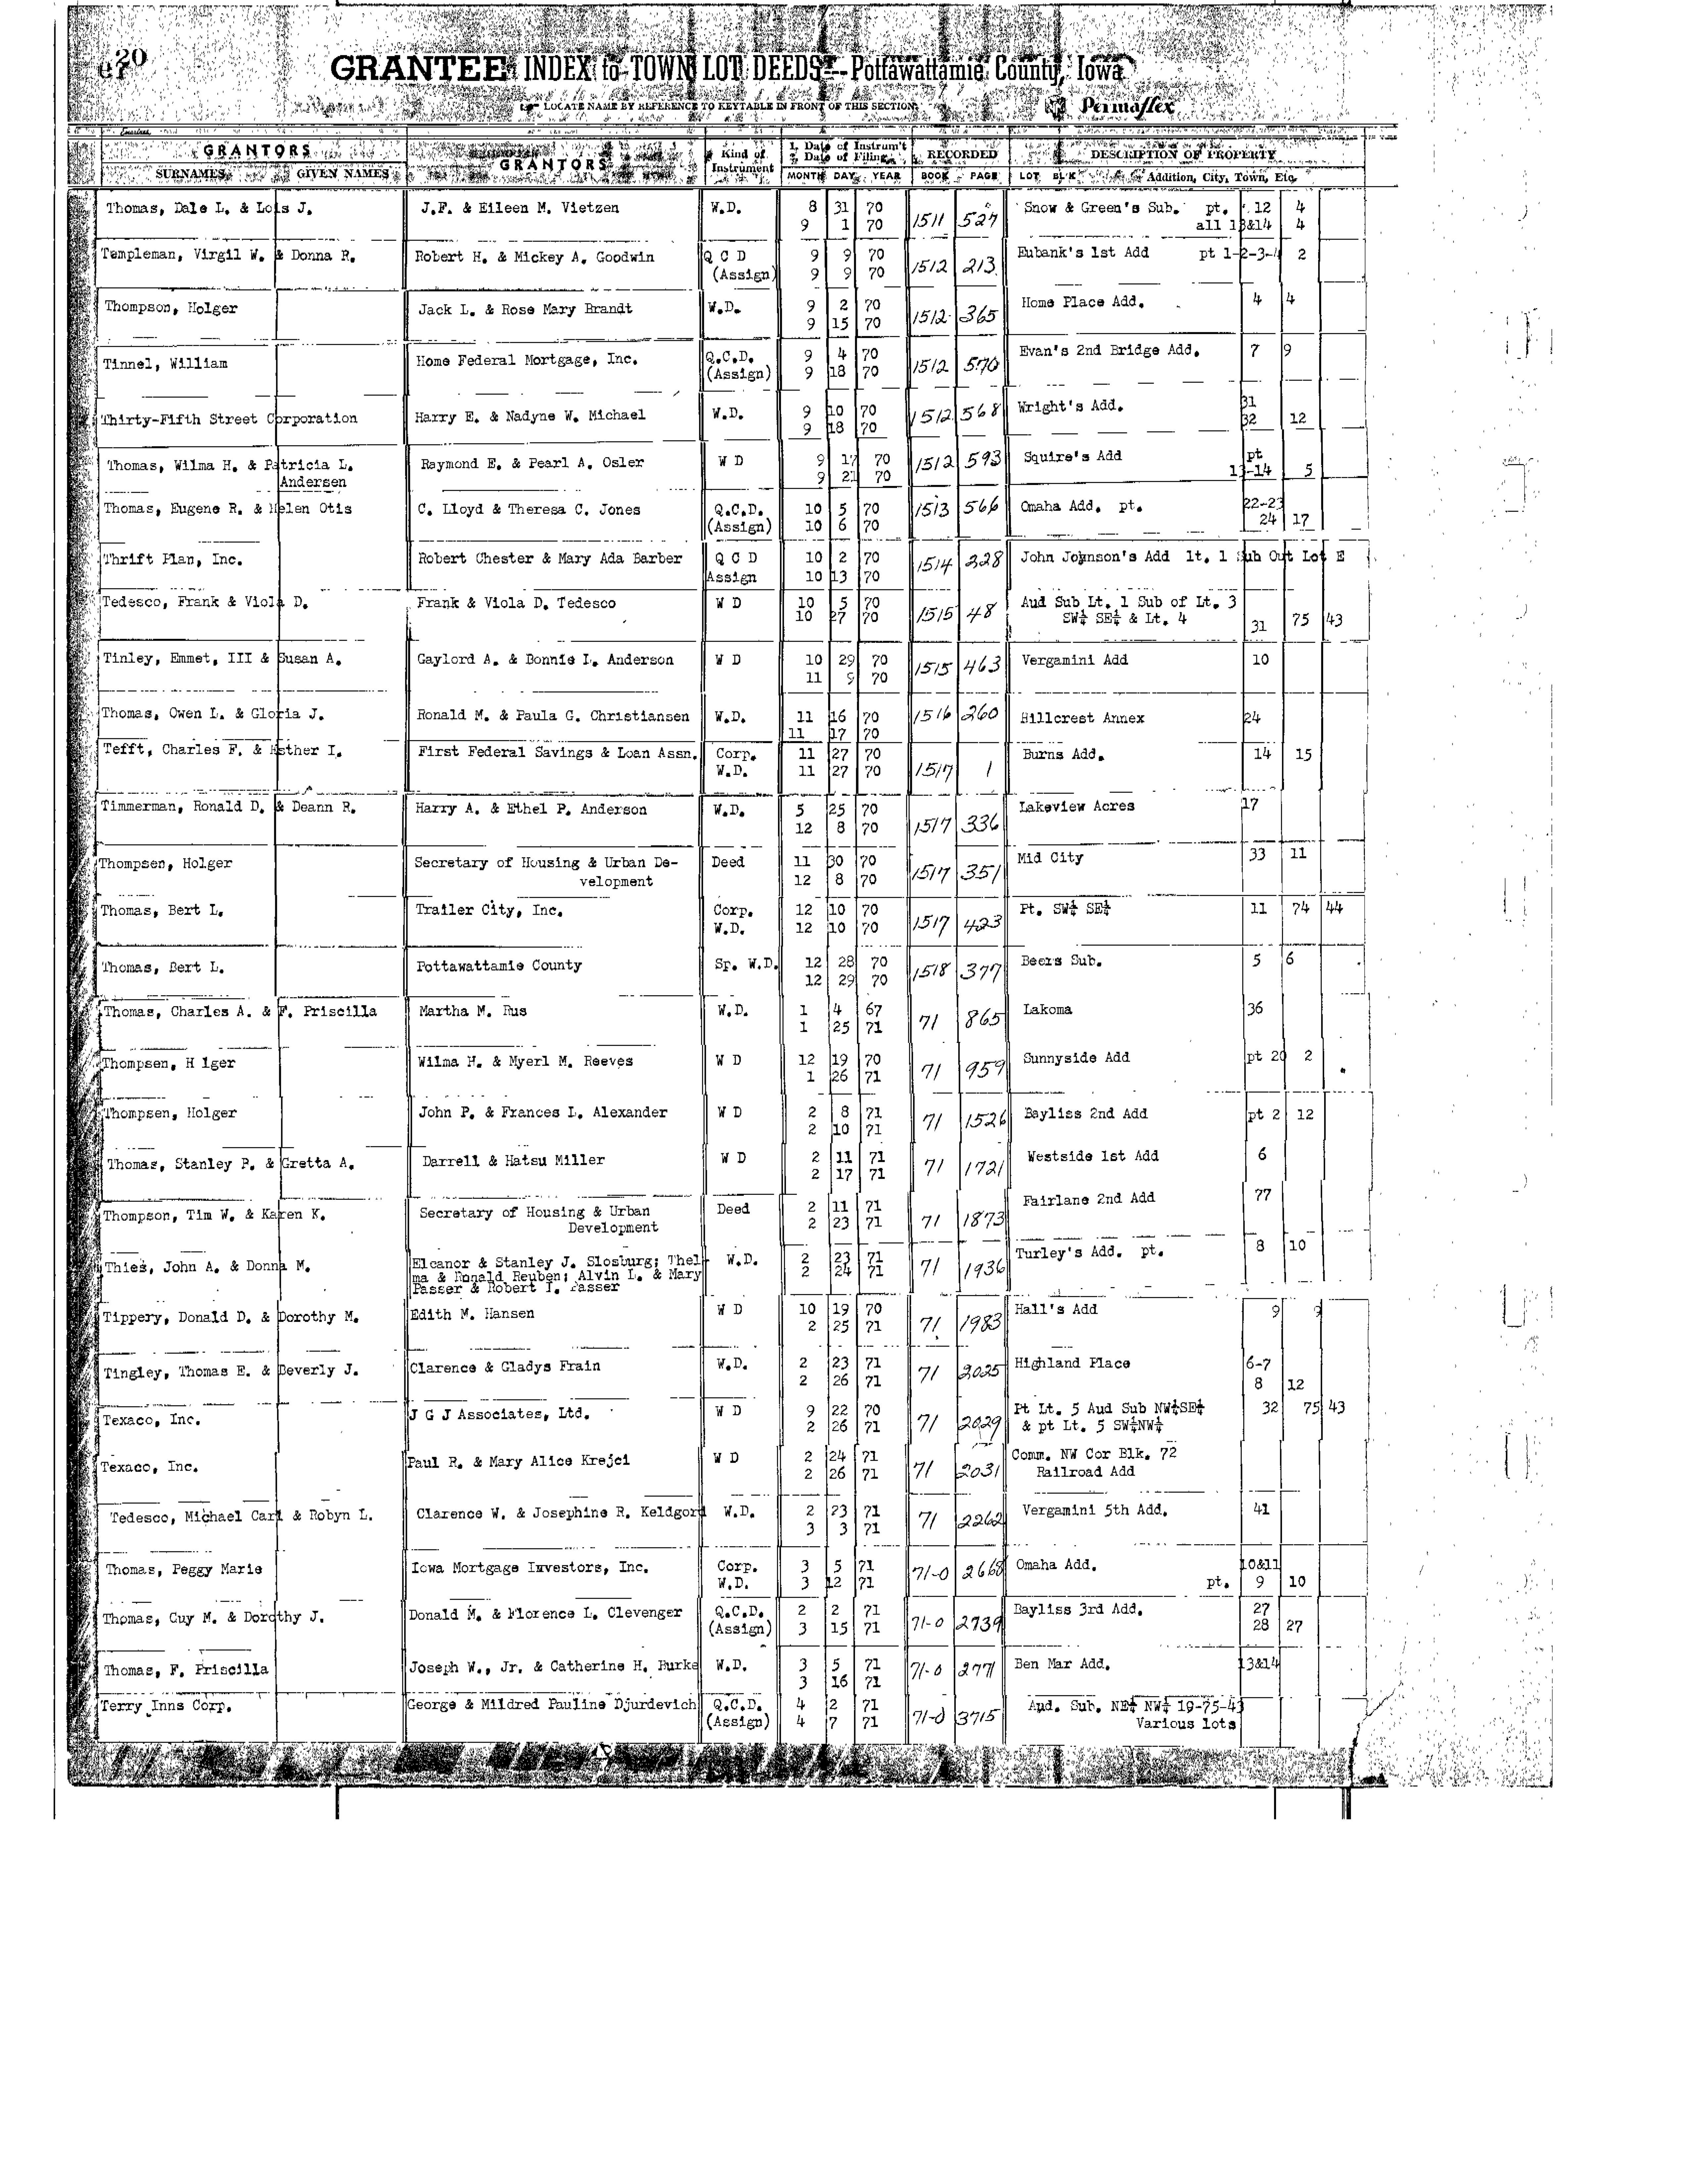 20
GRANTEE INDEX to TOWN LOT DEEDS - Pottawattamie County, Iowa
LOCATE NAME BY REFERENCE TO KEYTABLE IN FRONT OF THIS SECTION
Permaflex
GRANTORS GRANTORS Kind of Instrument 1. Date of Instrum't 2. Date of Filing RECORDED DESCRIPTION OF PROPERTY
SURNAMES GIVEN NAMES MONTH DAY YEAR BOOK PAGE LOT BLK Addition, City, Town, Etc.
Thomas, Dale L. & Lois J. J.F. & Eileen M. Vietzen W.D. 8 31 70 1511 527 Snow & Green's Sub. pt. 12 4
9 1 70 all 13&14 4
Templeman, Virgil W. & Donna R. Robert H. & Mickey A. Goodwin Q C D 9 9 70 1512 213 Eubank's 1st Add pt 1-2-3-4 2
(Assign) 9 9 70
Thompson, Holger Jack L. & Rose Mary Brandt W.D. 9 2 70 1512 365 Home Place Add. 4 4
9 15 70
Tinnel, William Home Federal Mortgage, Inc. Q.C.D. 9 4 70 1512 570 Evan's 2nd Bridge Add. 7 9
(Assign) 9 18 70
Thirty-Fifth Street Corporation Harry E. & Nadyne W. Michael W.D. 9 10 70 1512 568 Wright's Add. 31
9 18 70 32 12
Thomas, Wilma H. & Patricia L. Raymond E. & Pearl A. Osler W D 9 17 70 1512 593 Squire's Add pt
Andersen 9 21 70 13-14 5
Thomas, Eugene R. & Helen Otis C. Lloyd & Theresa C. Jones Q.C.D. 10 5 70 1513 566 Omaha Add. pt. 22-23
(Assign) 10 6 70 24 17
Thrift Plan, Inc. Robert Chester & Mary Ada Barber Q C D 10 2 70 1514 228 John Johnson's Add lt. 1 Sub Out Lot E
Assign 10 13 70
Tedesco, Frank & Viola D. Frank & Viola D. Tedesco W D 10 5 70 1515 48 Aud Sub Lt. 1 Sub of Lt. 3
10 27 70 SW¼ SE¼ & Lt. 4 31 75 43
Tinley, Emmet, III & Susan A. Gaylord A. & Bonnie L. Anderson W D 10 29 70 1515 463 Vergamini Add 10
11 9 70
Thomas, Owen L. & Gloria J. Ronald M. & Paula G. Christiansen W.D. 11 16 70 1516 260 Hillcrest Annex 24
11 17 70
Tefft, Charles F. & Esther I. First Federal Savings & Loan Assn. Corp. 11 27 70 1517 1 Burns Add. 14 15
W.D. 11 27 70
Timmerman, Ronald D. & Deann R. Harry A. & Ethel P. Anderson W.D. 5 25 70 1517 336 Lakeview Acres 17
12 8 70
Thompsen, Holger Secretary of Housing & Urban De- Deed 11 30 70 1517 351 Mid City 33 11
velopment 12 8 70
Thomas, Bert L. Trailer City, Inc. Corp. 12 10 70 1517 423 Pt. SW¼ SE¼ 11 74 44
W.D. 12 10 70
Thomas, Bert L. Pottawattamie County Sp. W.D. 12 28 70 1518 377 Beers Sub. 5 6
12 29 70
Thomas, Charles A. & F. Priscilla Martha M. Rus W.D. 1 4 67 71 865 Lakoma 36
1 25 71
Thompsen, H lger Wilma H. & Myerl M. Reeves W D 12 19 70 71 959 Sunnyside Add pt 20 2
1 26 71
Thompsen, Holger John P. & Frances L. Alexander W D 2 8 71 71 1526 Bayliss 2nd Add pt 2 12
2 10 71
Thomas, Stanley P. & Gretta A. Darrell & Hatsu Miller W D 2 11 71 71 1721 Westside 1st Add 6
2 17 71
Thompson, Tim W. & Karen K. Secretary of Housing & Urban Deed 2 11 71 71 1873 Fairlane 2nd Add 77
Development 2 23 71
Thies, John A. & Donna M. Eleanor & Stanley J. Slosburg; Thel- W.D. 2 23 71 71 1936 Turley's Add. pt. 8 10
ma & Ronald Reuben; Alvin L. & Mary 2 24 71
Passer & Robert I. Passer
Tippery, Donald D. & Dorothy M. Edith M. Hansen W D 10 19 70 71 1983 Hall's Add 9 9
2 25 71
Tingley, Thomas E. & Beverly J. Clarence & Gladys Frain W.D. 2 23 71 71 2025 Highland Place 6-7
2 26 71 8 12
Texaco, Inc. J G J Associates, Ltd. W D 9 22 70 71 2029 Pt Lt. 5 Aud Sub NW¼SE¼ 32 75 43
2 26 71 & pt Lt. 5 SW¼NW¼
Texaco, Inc. Paul R. & Mary Alice Krejci W D 2 24 71 71 2031 Comm. NW Cor Blk. 72
2 26 71 Railroad Add
Tedesco, Michael Carl & Robyn L. Clarence W. & Josephine R. Keldgord W.D. 2 23 71 71 2262 Vergamini 5th Add. 41
3 3 71
Thomas, Peggy Marie Iowa Mortgage Investors, Inc. Corp. 3 5 71 71-0 2668 Omaha Add. 10&11
W.D. 3 12 71 pt. 9 10
Thomas, Guy M. & Dorothy J. Donald M. & Florence L. Clevenger Q.C.D. 2 2 71 71-0 2739 Bayliss 3rd Add. 27
(Assign) 3 15 71 28 27
Thomas, F. Priscilla Joseph W., Jr. & Catherine H. Burke W.D. 3 5 71 71-0 2771 Ben Mar Add. 13&14
3 16 71
Terry Inns Corp. George & Mildred Pauline Djurdevich Q.C.D. 4 2 71 71-0 3715 Aud. Sub. NE¼ NW¼ 19-75-43
(Assign) 4 7 71 Various lots